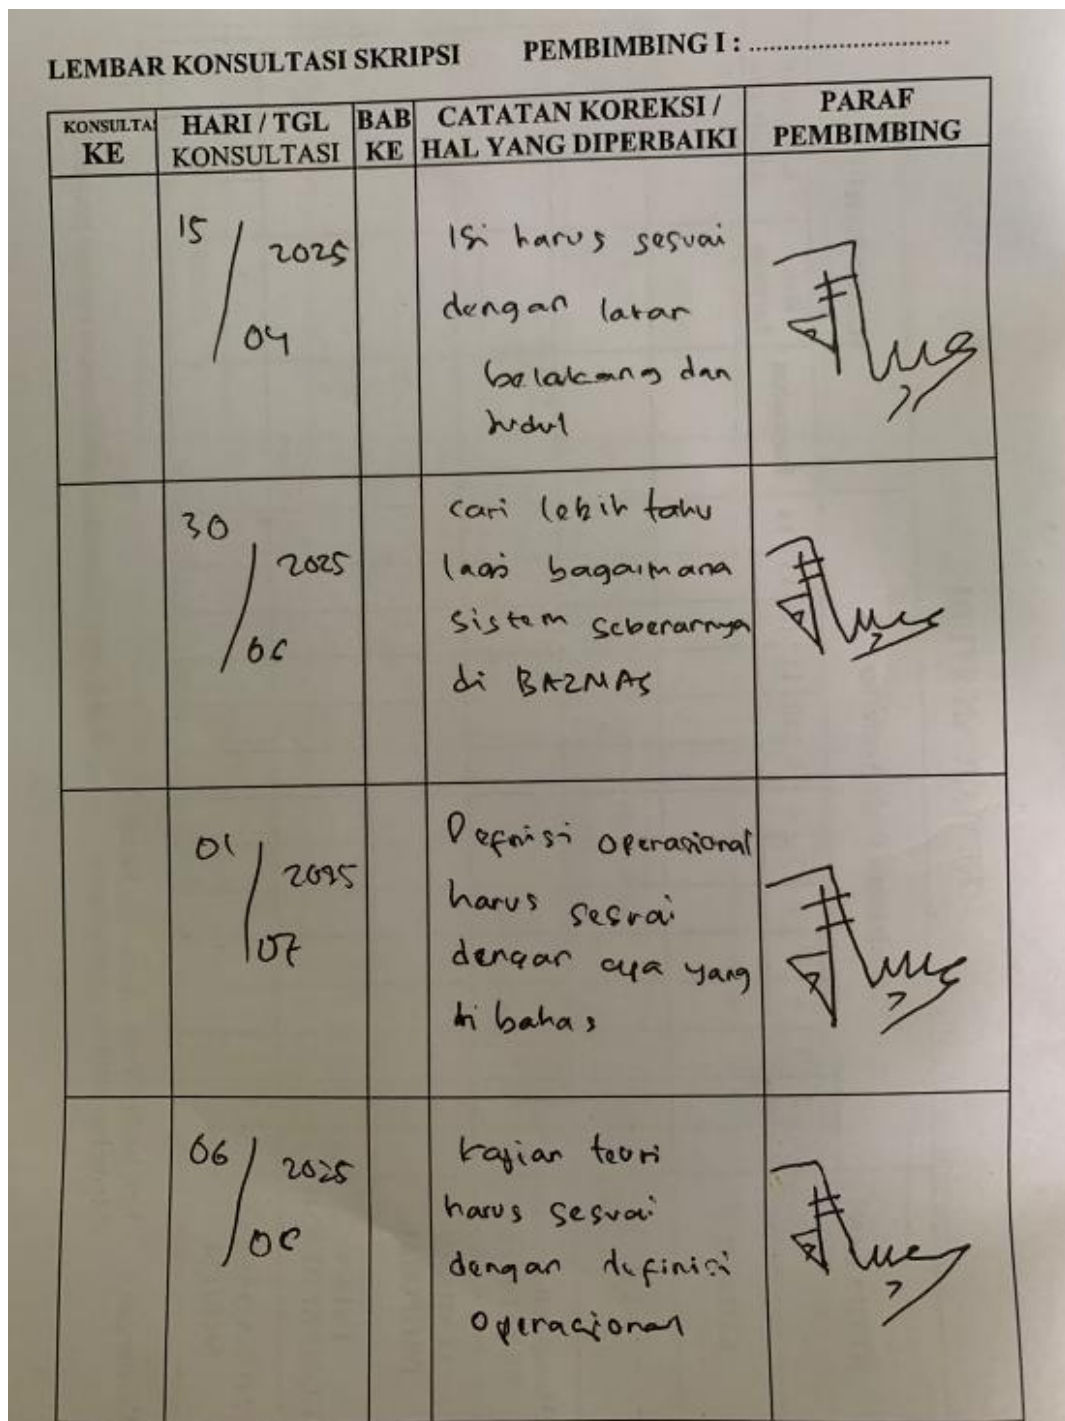 LEMBAR KONSULTASI SKRIPSI PEMBIMBING I : ..............................
KONSULTA KE HARI / TGL KONSULTASI BAB KE CATATAN KOREKSI / HAL YANG DIPERBAIKI PARAF PEMBIMBING
15 / 2025
/ 04
Isi harus sesuai
dengan latar
belakang dan
judul
30
/ 2025
/ 06
cari lebih tahu
lagi bagaimana
sistem sebenarnya
di BAZNAS
01 / 2025
07
Definisi operasional
harus sesuai
dengan apa yang
di bahas
06 / 2025
Kajian teori
harus sesuai
dengan definisi
operasional